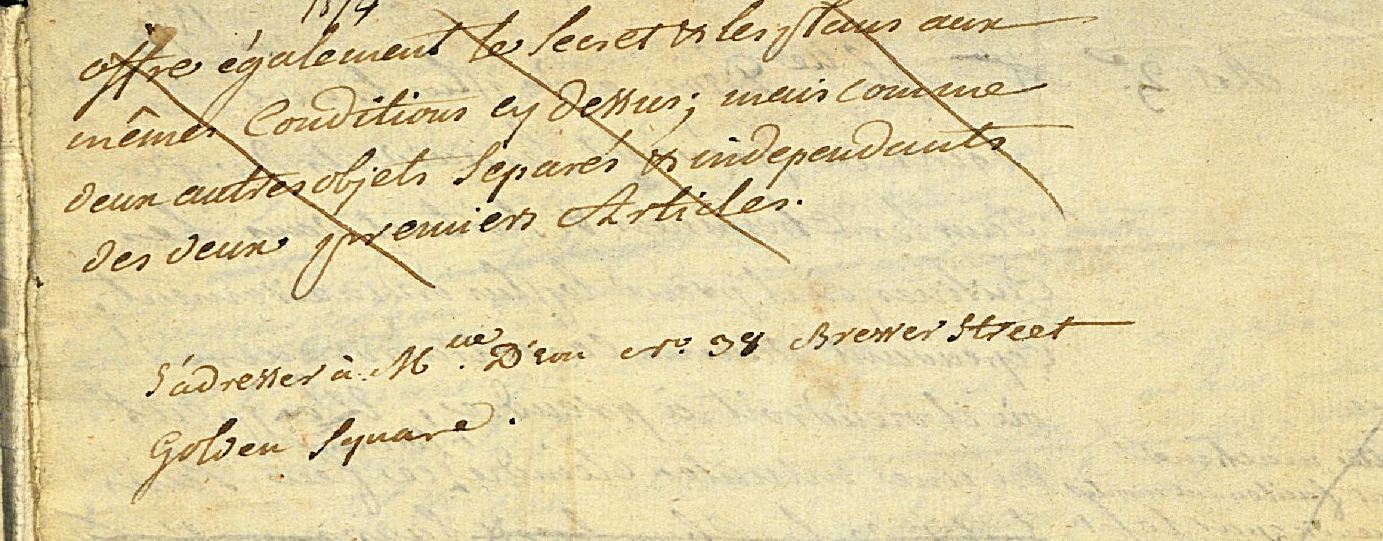 offre également le Secret & les plans aux
mêmes Conditions cy dessus; mais comme
deux autres objets Séparés & independants
des deux premiers Articles.
S'adresser à M.lle D'Eon No. 38 Brewer Street
Golden Square.